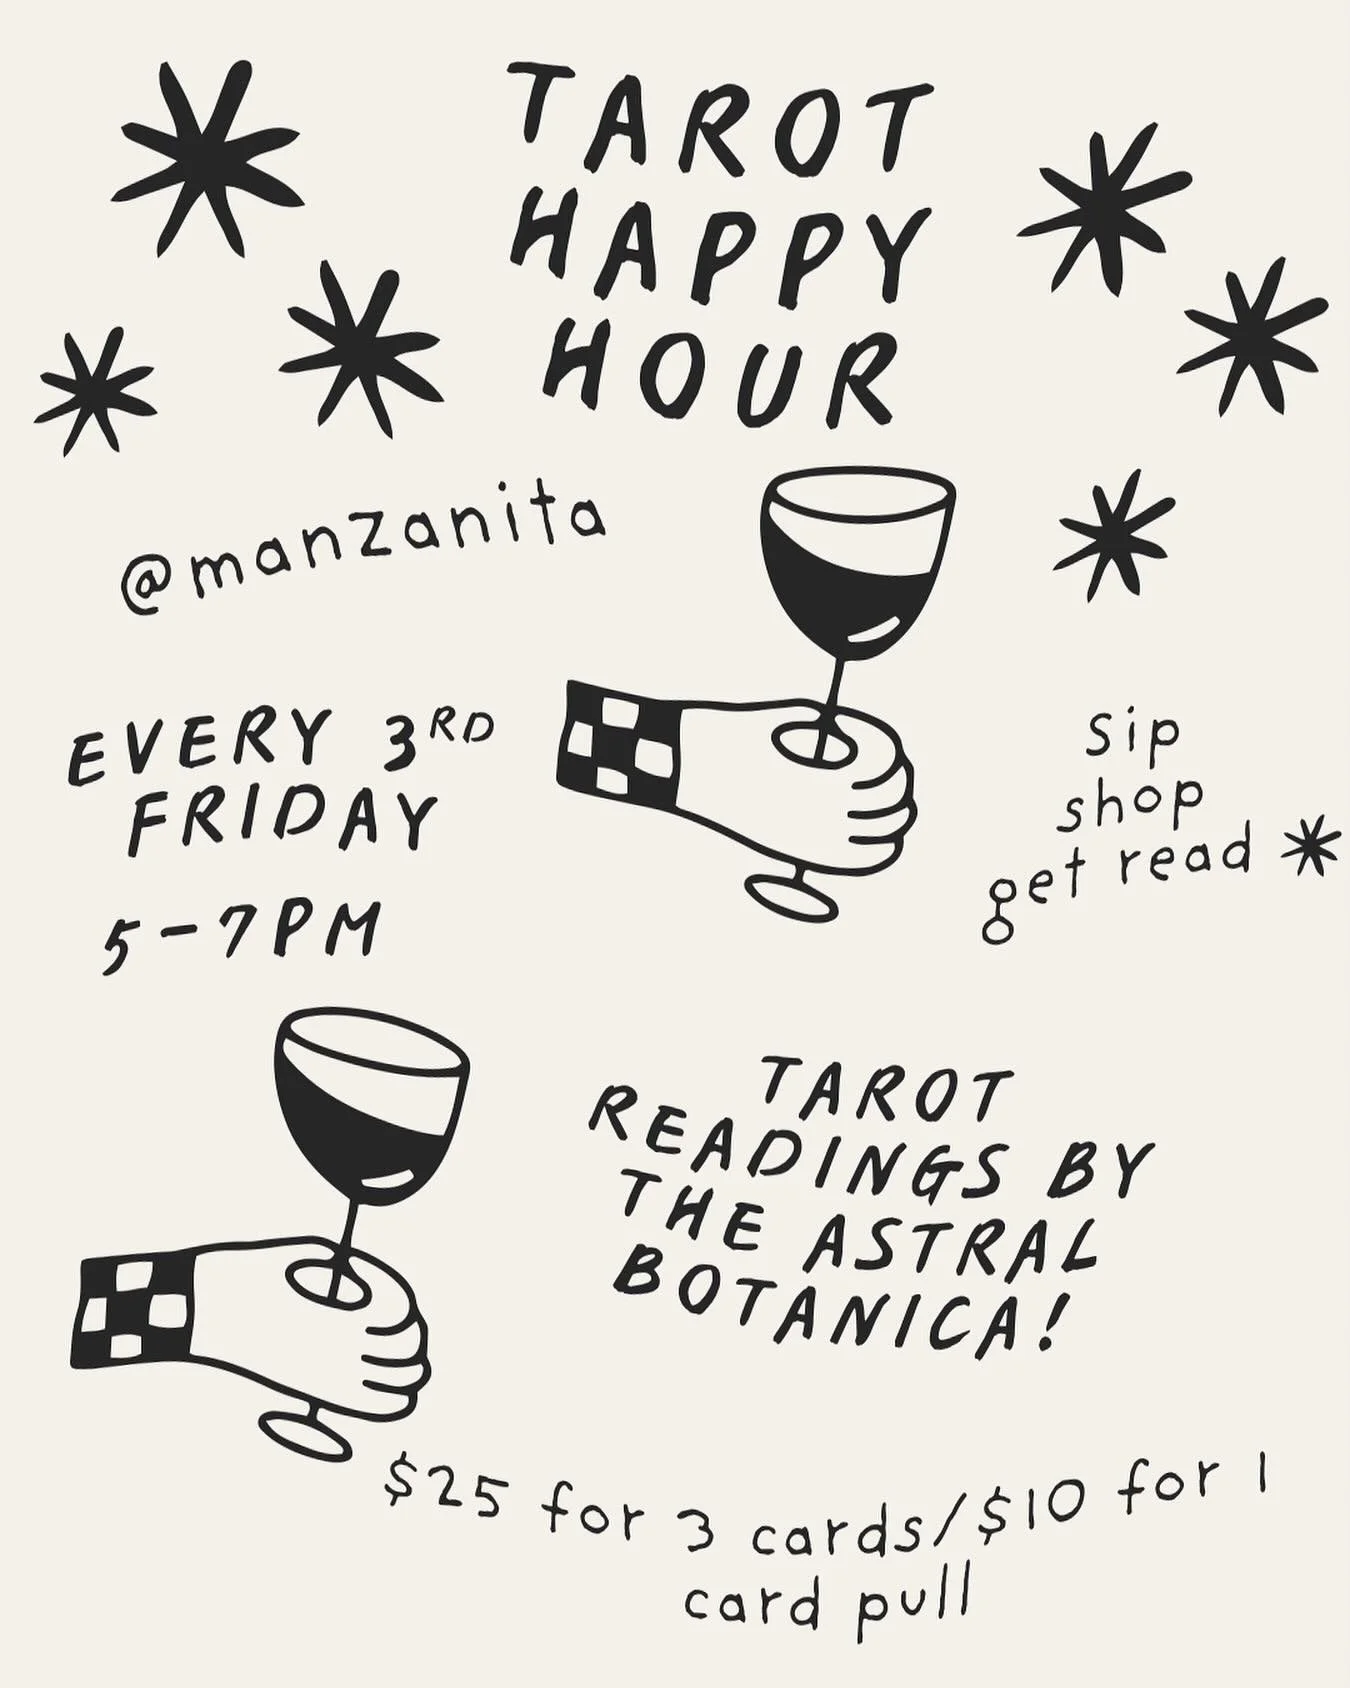 TAROT
HAPPY
HOUR
@manzanita
EVERY 3RD
FRIDAY
5-7PM
sip
shop
get read
TAROT
READINGS BY
THE ASTRAL
BOTANICA!
$25 for 3 cards/$10 for 1
card pull